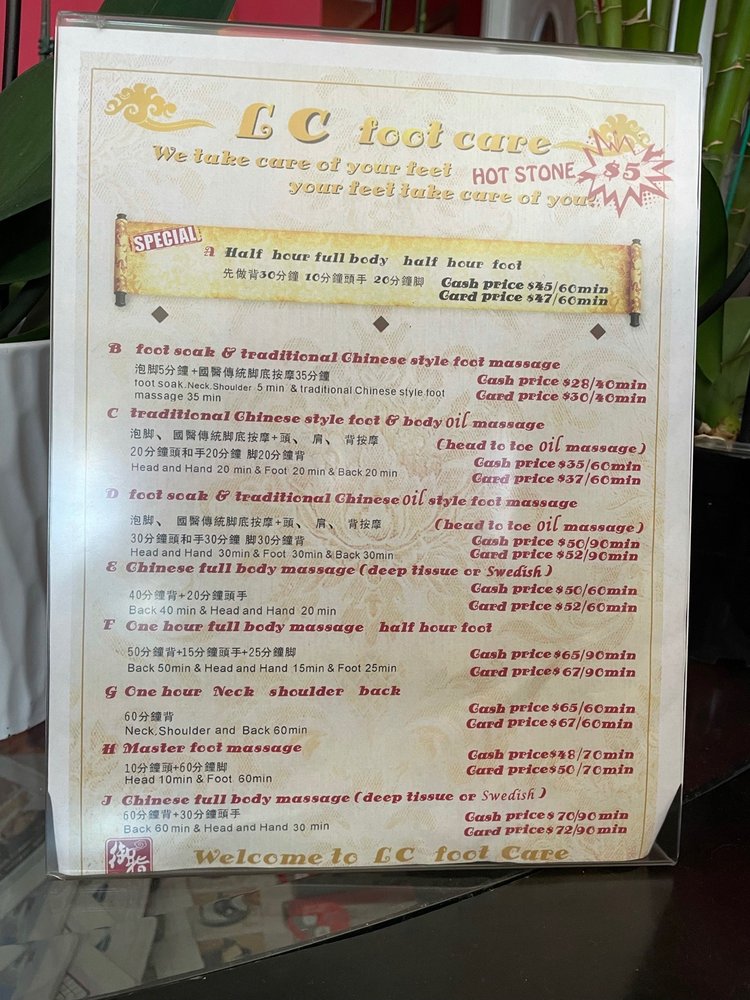 LC foot care
We take care of your feet
HOT STONE $5
your feet take care of you.
SPECIAL
A Half hour full body half hour foot
先做背30分鐘 10分鐘頭手 20分鐘脚
Cash price $45/60min
Card price $47/60min
B foot soak & traditional Chinese style foot massage
泡脚5分鐘+國醫傳統脚底按摩35分鐘
Cash price $28/40min
foot soak.Neck.Shoulder 5 min & traditional Chinese style foot
massage 35 min
Card price $30/40min
C traditional Chinese style foot & body oil massage
泡脚、國醫傳統脚底按摩+頭、肩、背按摩
(head to toe oil massage)
20分鐘頭和手20分鐘 脚20分鐘背
Cash price $35/60min
Head and Hand 20 min & Foot 20 min & Back 20 min
Card price $37/60min
D foot soak & traditional Chinese oil style foot massage
泡脚、國醫傳統脚底按摩+頭、肩、背按摩
(head to toe oil massage)
30分鐘頭和手30分鐘 脚30分鐘背
Cash price $50/90min
Head and Hand 30min & Foot 30min & Back 30min
Card price $52/90min
E Chinese full body massage (deep tissue or Swedish)
40分鐘背+20分鐘頭手
Cash price $50/60min
Back 40 min & Head and Hand 20 min
Card price $52/60min
F One hour full body massage half hour foot
50分鐘背+15分鐘頭手+25分鐘脚
Cash price $65/90min
Back 50min & Head and Hand 15min & Foot 25min
Card price $67/90min
G One hour Neck shoulder back
60分鐘背
Cash price $65/60min
Neck.Shoulder and Back 60min
Card price $67/60min
H Master foot massage
Cash price$48/70min
10分鐘頭+60分鐘脚
Card price$50/70min
Head 10min & Foot 60min
J Chinese full body massage (deep tissue or Swedish)
60分鐘背+30分鐘頭手
Cash price$ 70/90 min
Back 60 min & Head and Hand 30 min
Card price$ 72/90 min
Welcome to LC foot Care